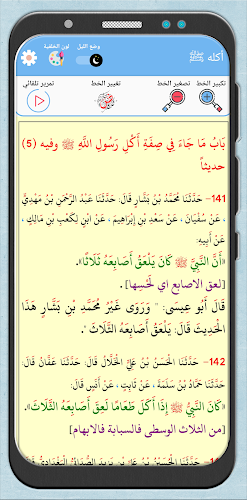 أكله ﷺ
وضع الليل
لون الخلفية
تكبير الخط
تصغير الخط
تغيير الخط
تمرير تلقائي
بَابُ مَا جَاءَ فِي صِفَةِ أَكْلِ رَسُولِ اللَّهِ ﷺ وفيه (5)
حديثاً
141- حَدَّثَنَا مُحَمَّدُ بْنُ بَشَّارٍ قَالَ: حَدَّثَنَا عَبْدُ الرَّحْمَنِ بْنُ مَهْدِيٍّ
، عَنْ سُفْيَانَ ، عَنْ سَعْدِ بْنِ إِبْرَاهِيمَ ، عَنْ ابْنٍ لِكَعْبِ بْنِ مَالِكٍ ،
عَنْ أَبِيهِ:
«أَنَّ النَّبِيَّ ﷺ كَانَ يَلْعَقُ أَصَابِعَهُ ثَلَاثًا».
[لعق الاصابع اي لَحْسِها]
قَالَ أَبُو عِيسَى: " وَرَوَى غَيْرُ مُحَمَّدِ بْنِ بَشَّارٍ هَذَا
الْحَدِيثَ قَالَ: يَلْعَقُ أَصَابِعَهُ الثَّلَاثَ ".
142- حَدَّثَنَا الْحَسَنُ بْنُ عَلِيٍّ الْخَلَّالُ قَالَ: حَدَّثَنَا عَفَّانُ قَالَ:
حَدَّثَنَا حَمَّادُ بْنُ سَلَمَةَ ، عَنْ ثَابِتٍ ، عَنْ أَنَسٍ قَالَ:
«كَانَ النَّبِيُّ ﷺ إِذَا أَكَلَ طَعَامًا لَعِقَ أَصَابِعَهُ الثَّلَاثَ».
[من الثلاث الوسطى فالسبابة فالابهام]
143- حَدَّثَنَا الْحُسَيْنُ بْنُ عَلِيِّ بْنِ يَزِيدَ الصُّدَائِيُّ الْبَغْدَادِيُّ